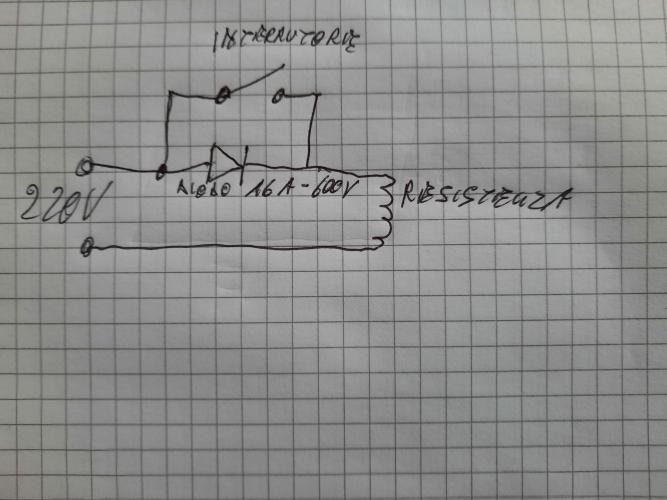 INTERRUTORE
DIODO 16A-600V
RESISTENZA
220V